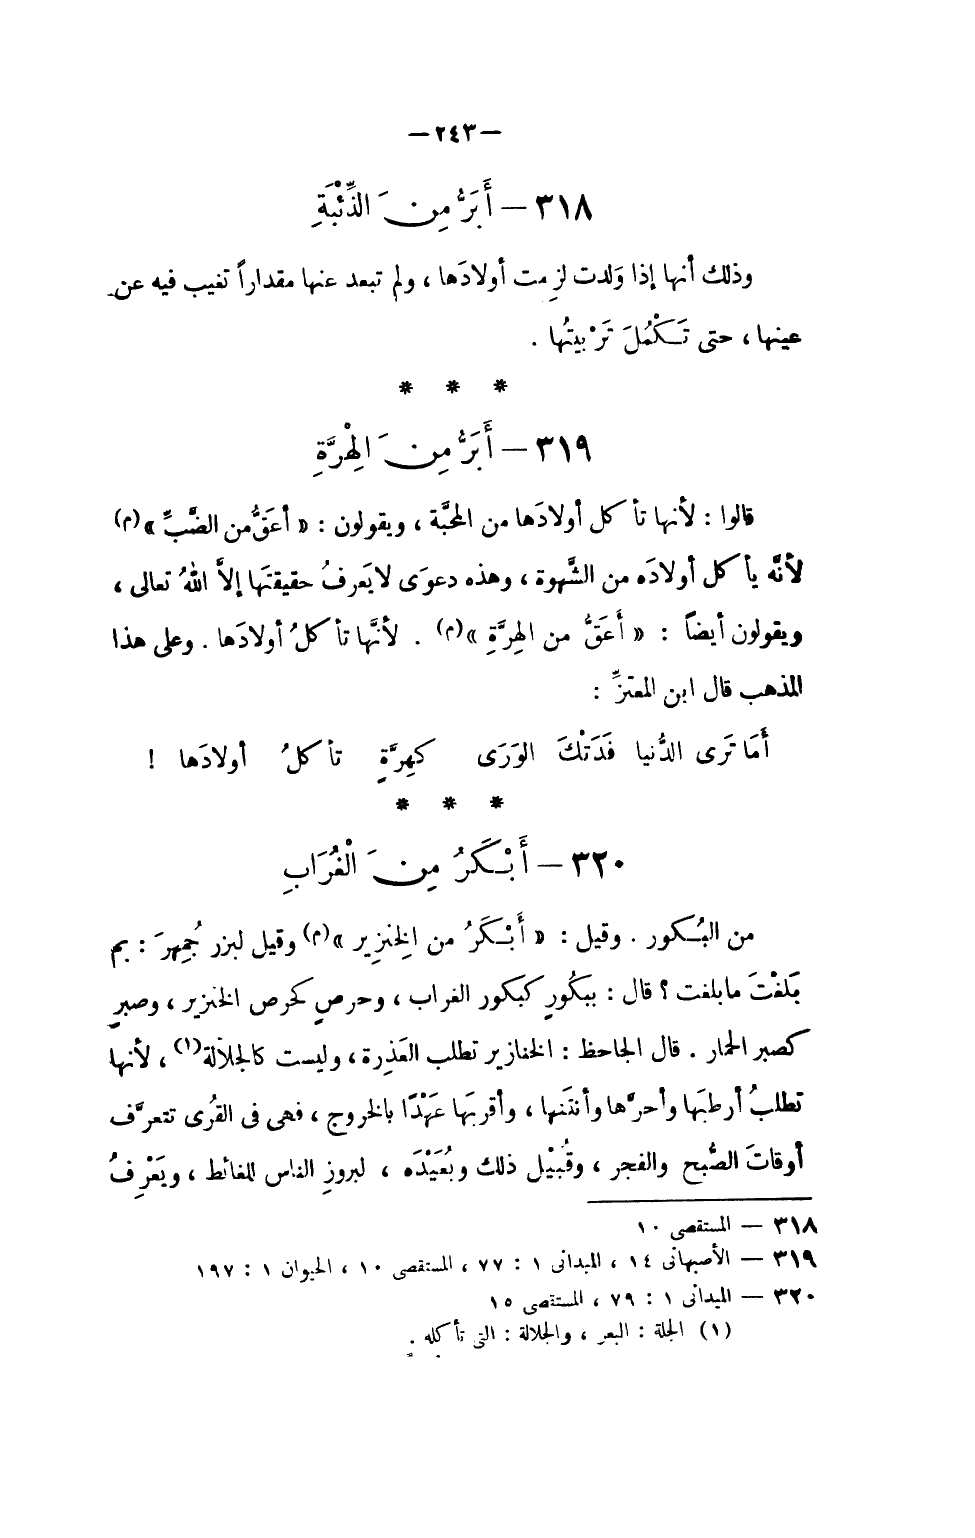 —٢٤٣—
٣١٨ — أَبَرُّ مِنَ الذِّئْبَةِ
وذلك أنها إذا وَلدت لزِمت أولادَها ، ولم تبعد عنها مقداراً تغيب فيه عن
عينها ، حتى تَكْمُلَ تَرْبيتُها .
* * *
٣١٩ — أَبَرُّ مِنَ الهِرَّةِ
قالوا : لأنها تأكل أولادَها من المحبَّة ، ويقولون : « أعَقُّ من الضَّبِّ »(م)
لأنَّه يأكل أولادَه من الشَّهوة ، وهذه دعوَى لا يَعرفُ حقيقتَها إلاَّ اللهُ تعالى ،
ويقولون أيضاً : « أَعَقُّ من الهِرَّةِ »(م) . لأنَّها تأكلُ أولادَها . وعلى هذا
المذهب قال ابن المعتزِّ :
أَمَا تَرى الدُّنيا فَدَتْكَ الوَرَى كهِرَّةٍ تأكلُ أولادَها !
* * *
٣٢٠ — أَبْكَرُ مِنَ الْغُرَابِ
من البُكور . وقيل : « أَبْكَرُ من الخِنزِير »(م) وقيل لبزرجُمِهرَ : بم
بَلغْتَ ما بلغت ؟ قال : ببكُورٍ كبكور الغراب ، وحرصٍ كحرص الخنزير ، وصبرٍ
كصبر الحمار . قال الجاحظ : الخنازير تطلب العَذِرة ، وليست كالجلاّلة(١) ، لأنها
تطلبُ أرطبَها وأحرَّها وأنتَنها ، وأقربَها عَهْدًا بالخروج ، فهى فى القُرى تتعرَّف
أوقاتَ الصُّبح والفجر ، وقُبيْل ذلك وبُعَيْدَه ، لبروزِ الناس للغائط ، ويَعْرِفُ
٣١٨ — المستقصى ١٠
٣١٩ — الأصبهانى ١٤ ، الميدانى ١ : ٧٧ ، المستقصى ١٠ ، الحيوان ١ : ١٩٧
٣٢٠ — الميدانى ١ : ٧٩ ، المستقصى ١٥
(١) الجلة : البعر ، والجلالة : التى تأكله .